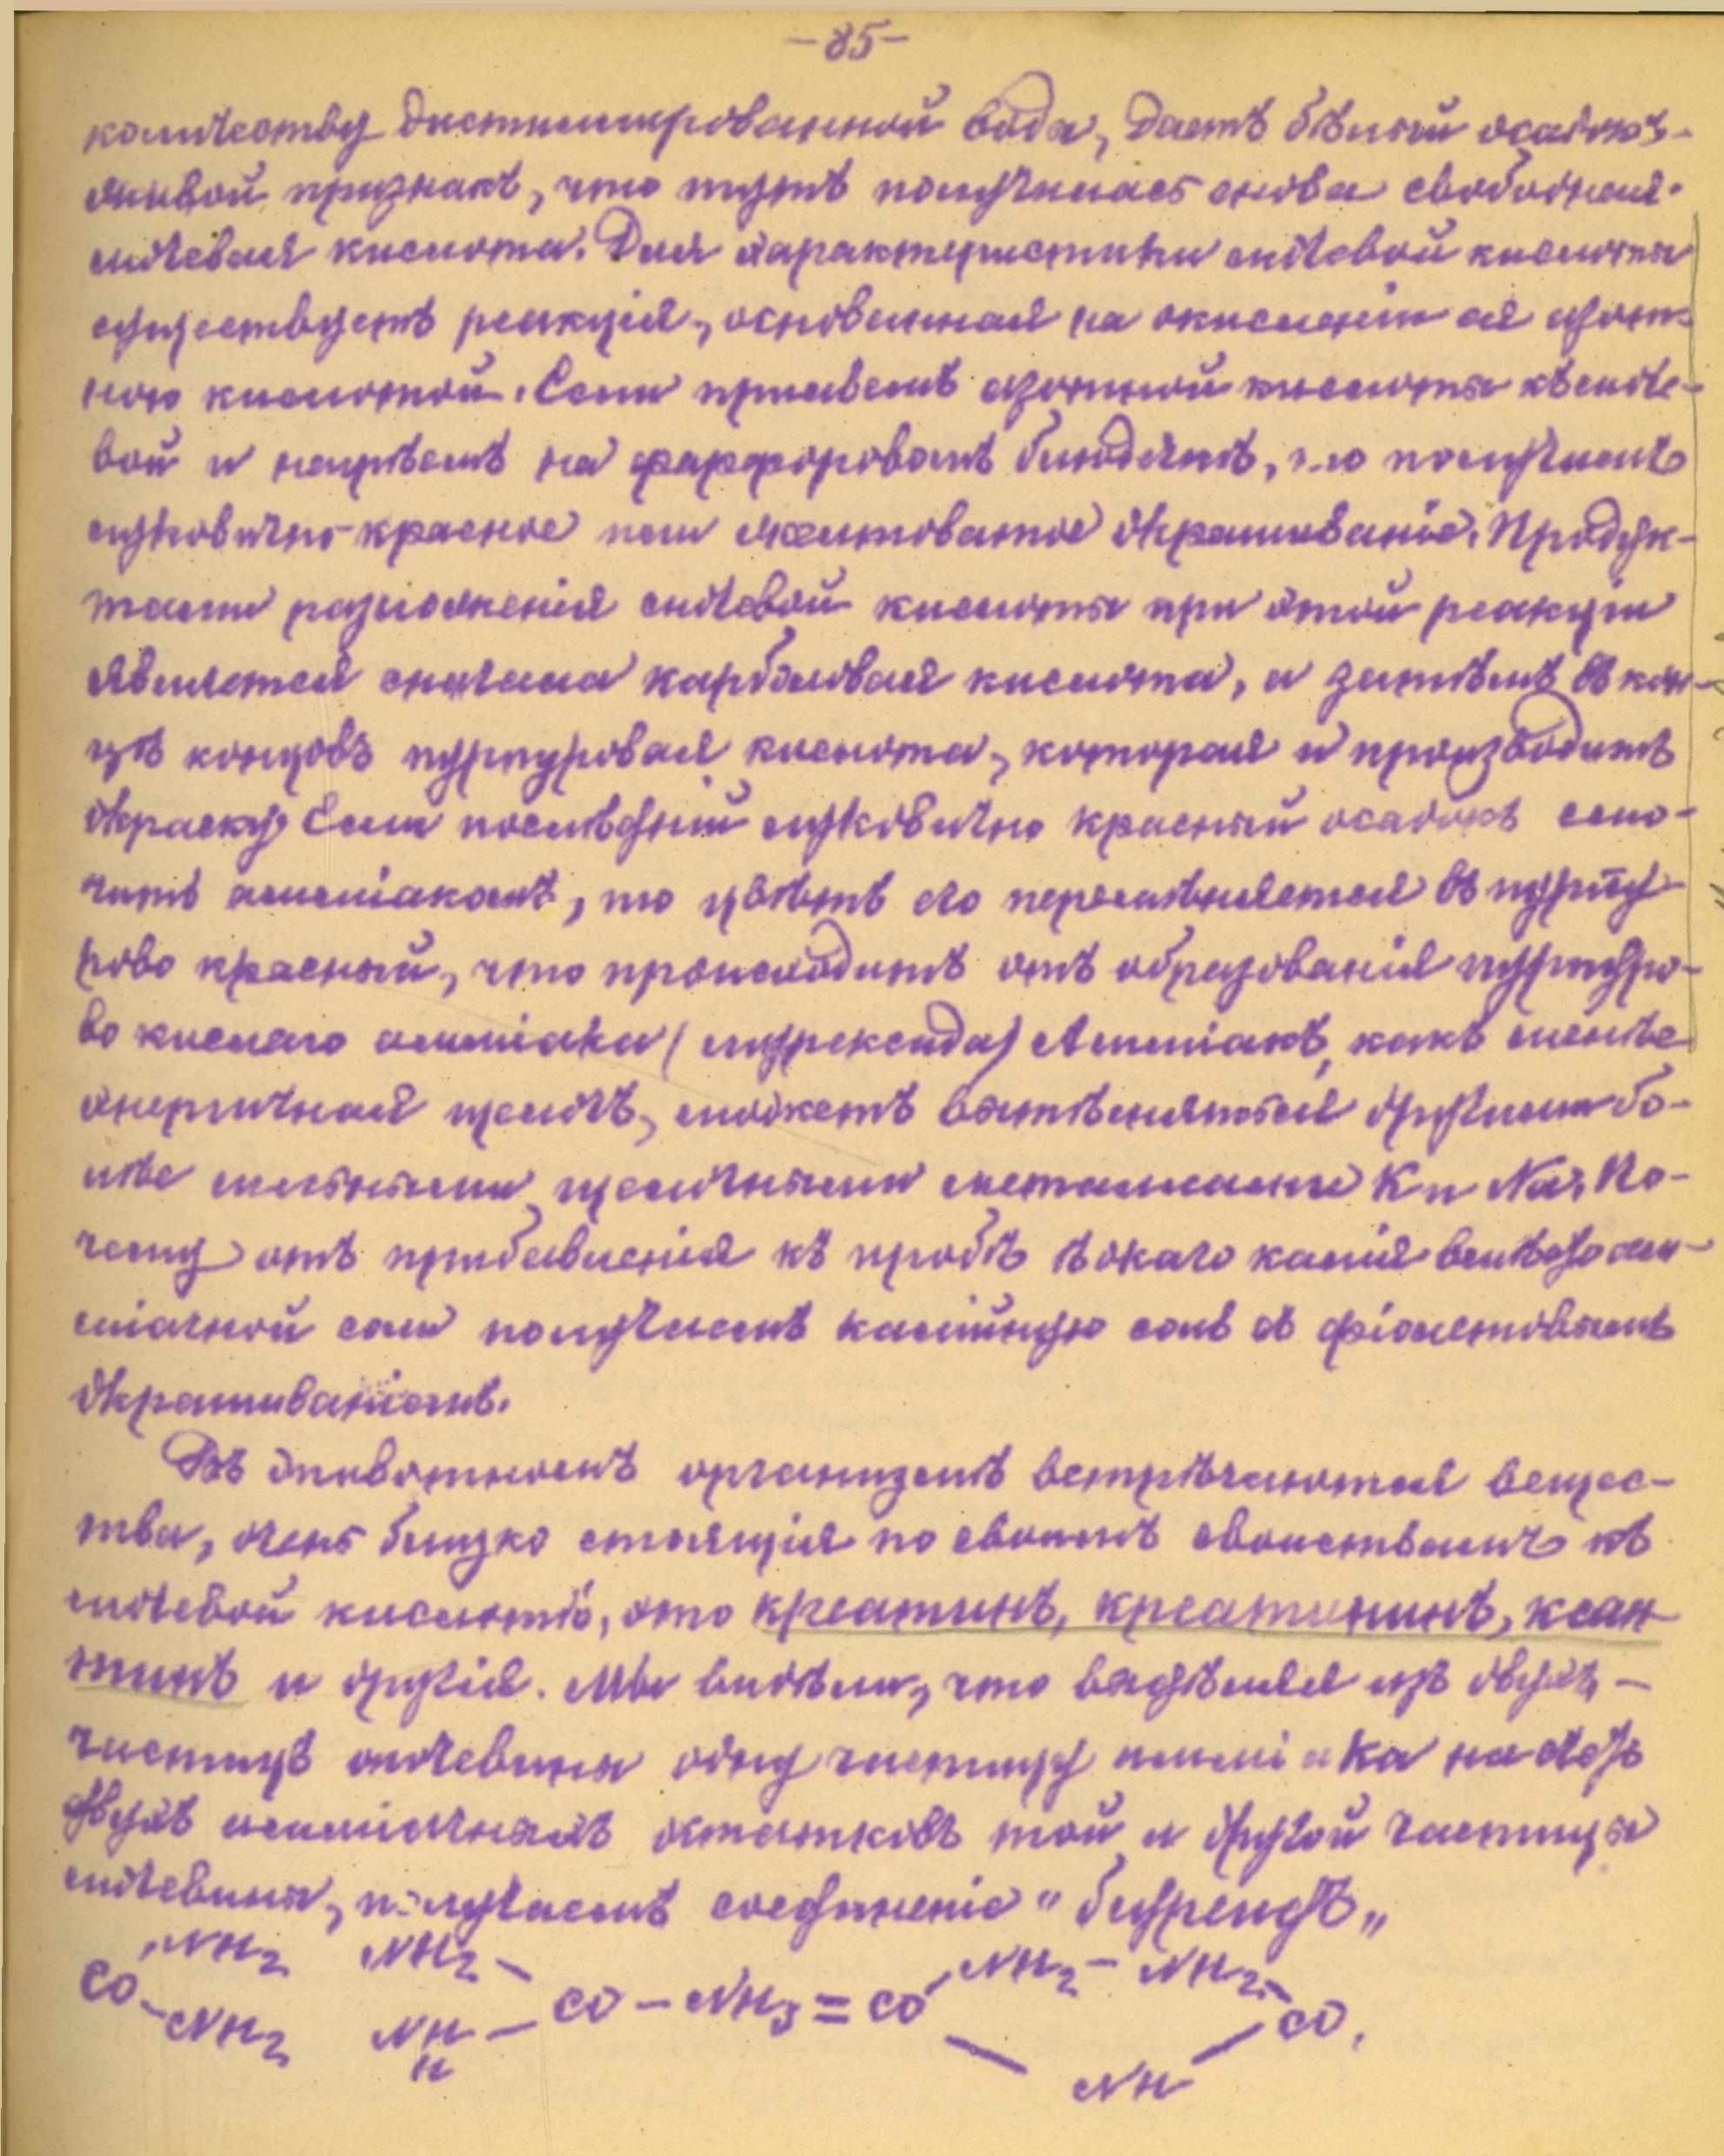 -85-
количеству дистиллированной воды, даетъ бѣлый осадокъ-
живой признакъ, что тутъ получилась снова свободная
мочевая кислота. Для характеристики мочевой кислоты
существуетъ реакція, основанная на окисленіи ея азот-
ною кислотой. Если прибавить азотной кислоты къ моче-
вой и нагрѣемъ на фарфоровомъ блюдечкѣ, то получимъ
луковично-красное или желтоватое окрашиваніе. Продук-
тами разложенія мочевой кислоты при этой реакціи
является сначала карболовая кислота, а затѣмъ въ кон-
цѣ концовъ пурпуровая кислота, которая и производитъ
окраску. Если послѣдній луковично красный осадокъ смо-
чить амміакомъ, то цвѣтъ его перемѣняется въ пурпу-
рово красный, что происходитъ отъ образованія пурпуро-
во кислаго амміака (мурексида) Амміакъ, какъ менѣе
энергичная щелочь, можетъ вытѣсняться другими бо-
лѣе сильными щелочными металлами K и Na. По-
чему отъ прибавленія къ пробѣ ѣдкаго калія вмѣсто ам-
міачной соли получаемъ калійную соль съ фіолетовымъ
окрашиваніемъ.
Въ животномъ организмѣ встрѣчаются вещес-
тва, очень близко стоящія по своимъ свойствамъ къ
мочевой кислотѣ, это креатинъ, креатининъ, ксан-
тинъ и другія. Мы видѣли, что выдѣляя изъ двухъ-
частицъ мочевины одну частицу амміака на счетъ
двухъ амміачныхъ остатковъ той и другой частицы
мочевины, получаемъ соединеніе "биуреидъ"
NH2 NH2 - NH2 - NH2
CO CO - NH3 = CO CO.
NH2 NH -
H NH